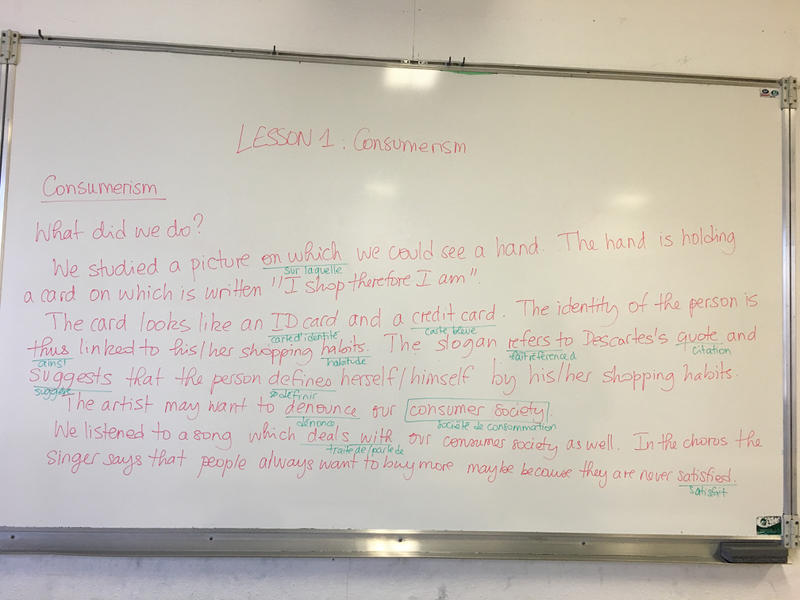 LESSON 1 : Consumerism
Consumerism
What did we do?
We studied a picture on which we could see a hand. The hand is holding
sur laquelle
a card on which is written "I shop therefore I am".
The card looks like an ID card and a credit card. The identity of the person is
carte d'identité carte bleue
thus linked to his/her shopping habits. The slogan refers to Descartes's quote and
ainsi habitude fait référence à citation
suggests that the person defines herself/himself by his/her shopping habits.
suggère se définir
The artist may want to denounce our consumer society.
dénonce société de consommation
We listened to a song which deals with our consumer society as well. In the chorus the
traite de/parle de
singer says that people always want to buy more maybe because they are never satisfied.
satisfait